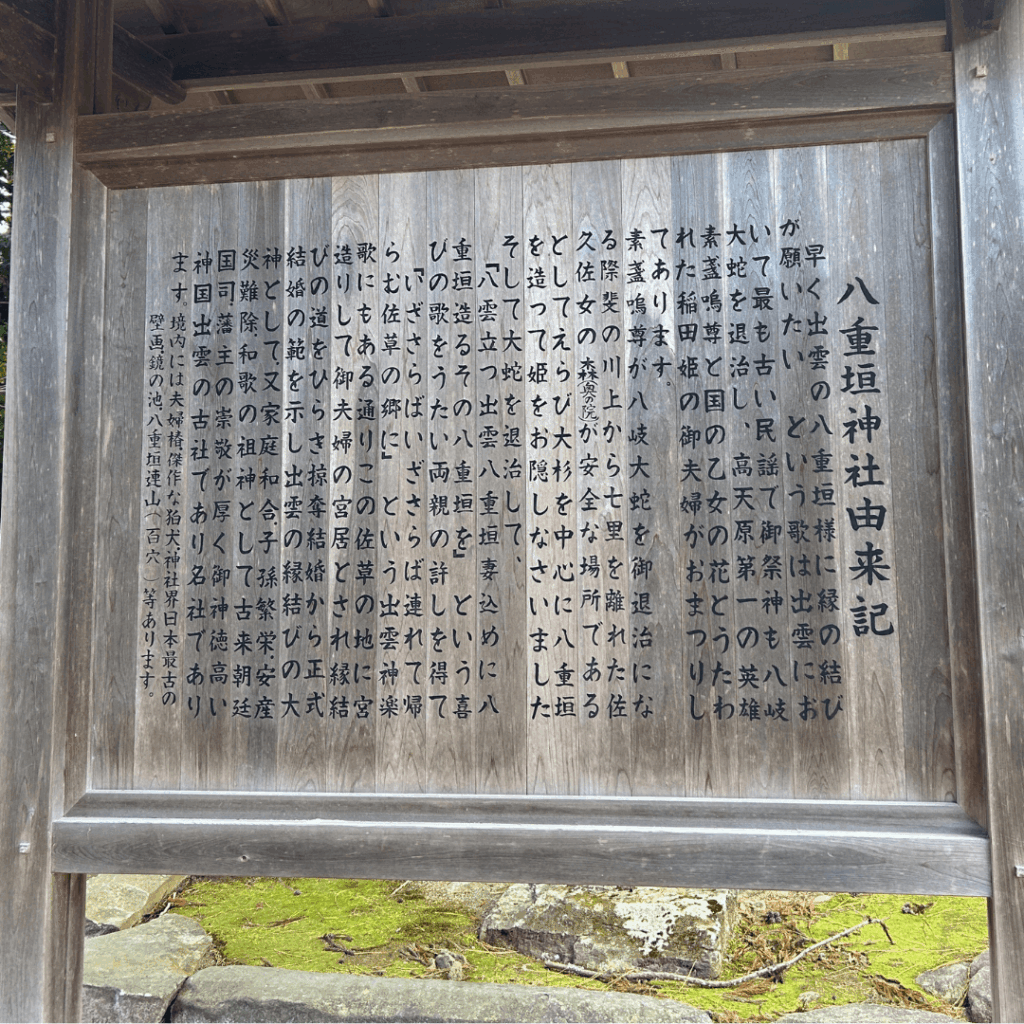 八重垣神社由来記
早く出雲の八重垣様に縁の結び
が願いたい　という歌は出雲にお
いて最も古い民謡で御祭神も八岐
大蛇を退治し、高天原第一の英雄
素盞嗚尊と国の乙女の花とうたわ
れた稲田姫の御夫婦がおまつりし
てあります。
素盞嗚尊が八岐大蛇を御退治にな
る際斐の川上から七里を離れた佐
久佐女の森(奥の院)が安全な場所である
としてえらび大杉を中心に八重垣
を造って姫をお隠しなさいました
そして大蛇を退治して、
『八雲立つ出雲八重垣妻込めに八
重垣造るその八重垣を』という喜
びの歌をうたい両親の許しを得て
『いざさらばいざさらば連れて帰
らむ佐草の郷に』という出雲神楽
歌にもある通りこの佐草の地に宮
造りして御夫婦の宮居とされ縁結
びの道をひらき掠奪結婚から正式
結婚の範を示し出雲の縁結びの大
神として、又家庭和合、子孫繁栄、安産
災難除、和歌の祖神として古来朝廷
国司、藩主の崇敬が厚く御神徳高い
神国出雲の古社であり名社であり
ます。境内には夫婦椿、傑作な狛犬、神社界日本最古の
壁画、鏡の池、八重垣連山（百穴）等あります。